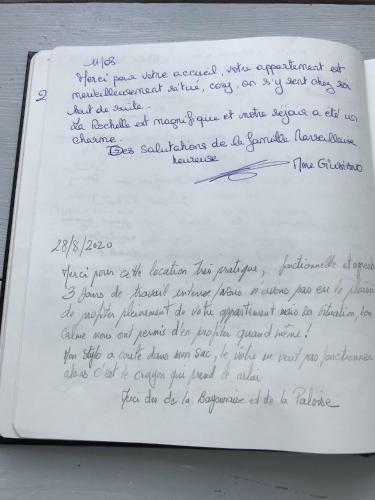 11/08
Merci pour votre accueil, votre appartement est
merveilleusement situé, cosy, on s'y sent chez soi
tout de suite.
2
La Rochelle est magnifique et notre séjour a été un
charme.
Des salutations de la famille Marseillaise
heureuse
Mme
28/8/2020
Merci pour cette location très pratique, fonctionnelle et agréable
3 Jours de travail intense, Nous n'avons pas eu le plaisir
de profiter pleinement de votre appartement mais sa situation, son
calme nous ont permis d'en profiter quand même!
Mon stylo a coulé dans mon sac, le vôtre ne veut pas fonctionner
alors c'est le crayon qui prend le relai
de la Bayonnaise et de la Paloise